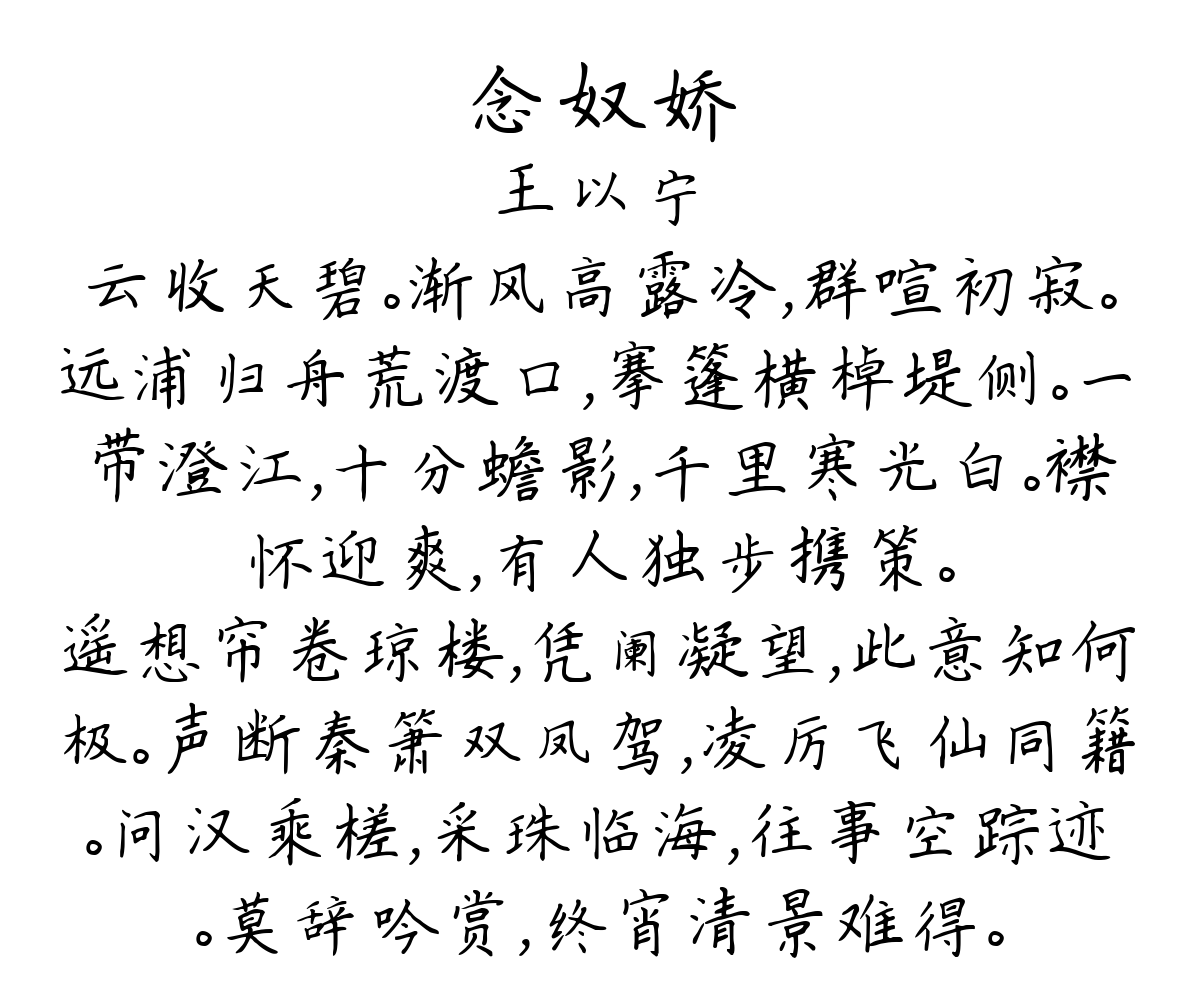 念奴娇
王以宁
云收天碧。渐风高露冷,群喧初寂。
远浦归舟荒渡口,搴篷横棹堤侧。一
带澄江,十分蟾影,千里寒光白。襟
怀迎爽,有人独步携策。
遥想帘卷琼楼,凭阑凝望,此意知何
极。声断秦箫双凤驾,凌厉飞仙同籍
。问汉乘槎,采珠临海,往事空踪迹
。莫辞吟赏,终宵清景难得。